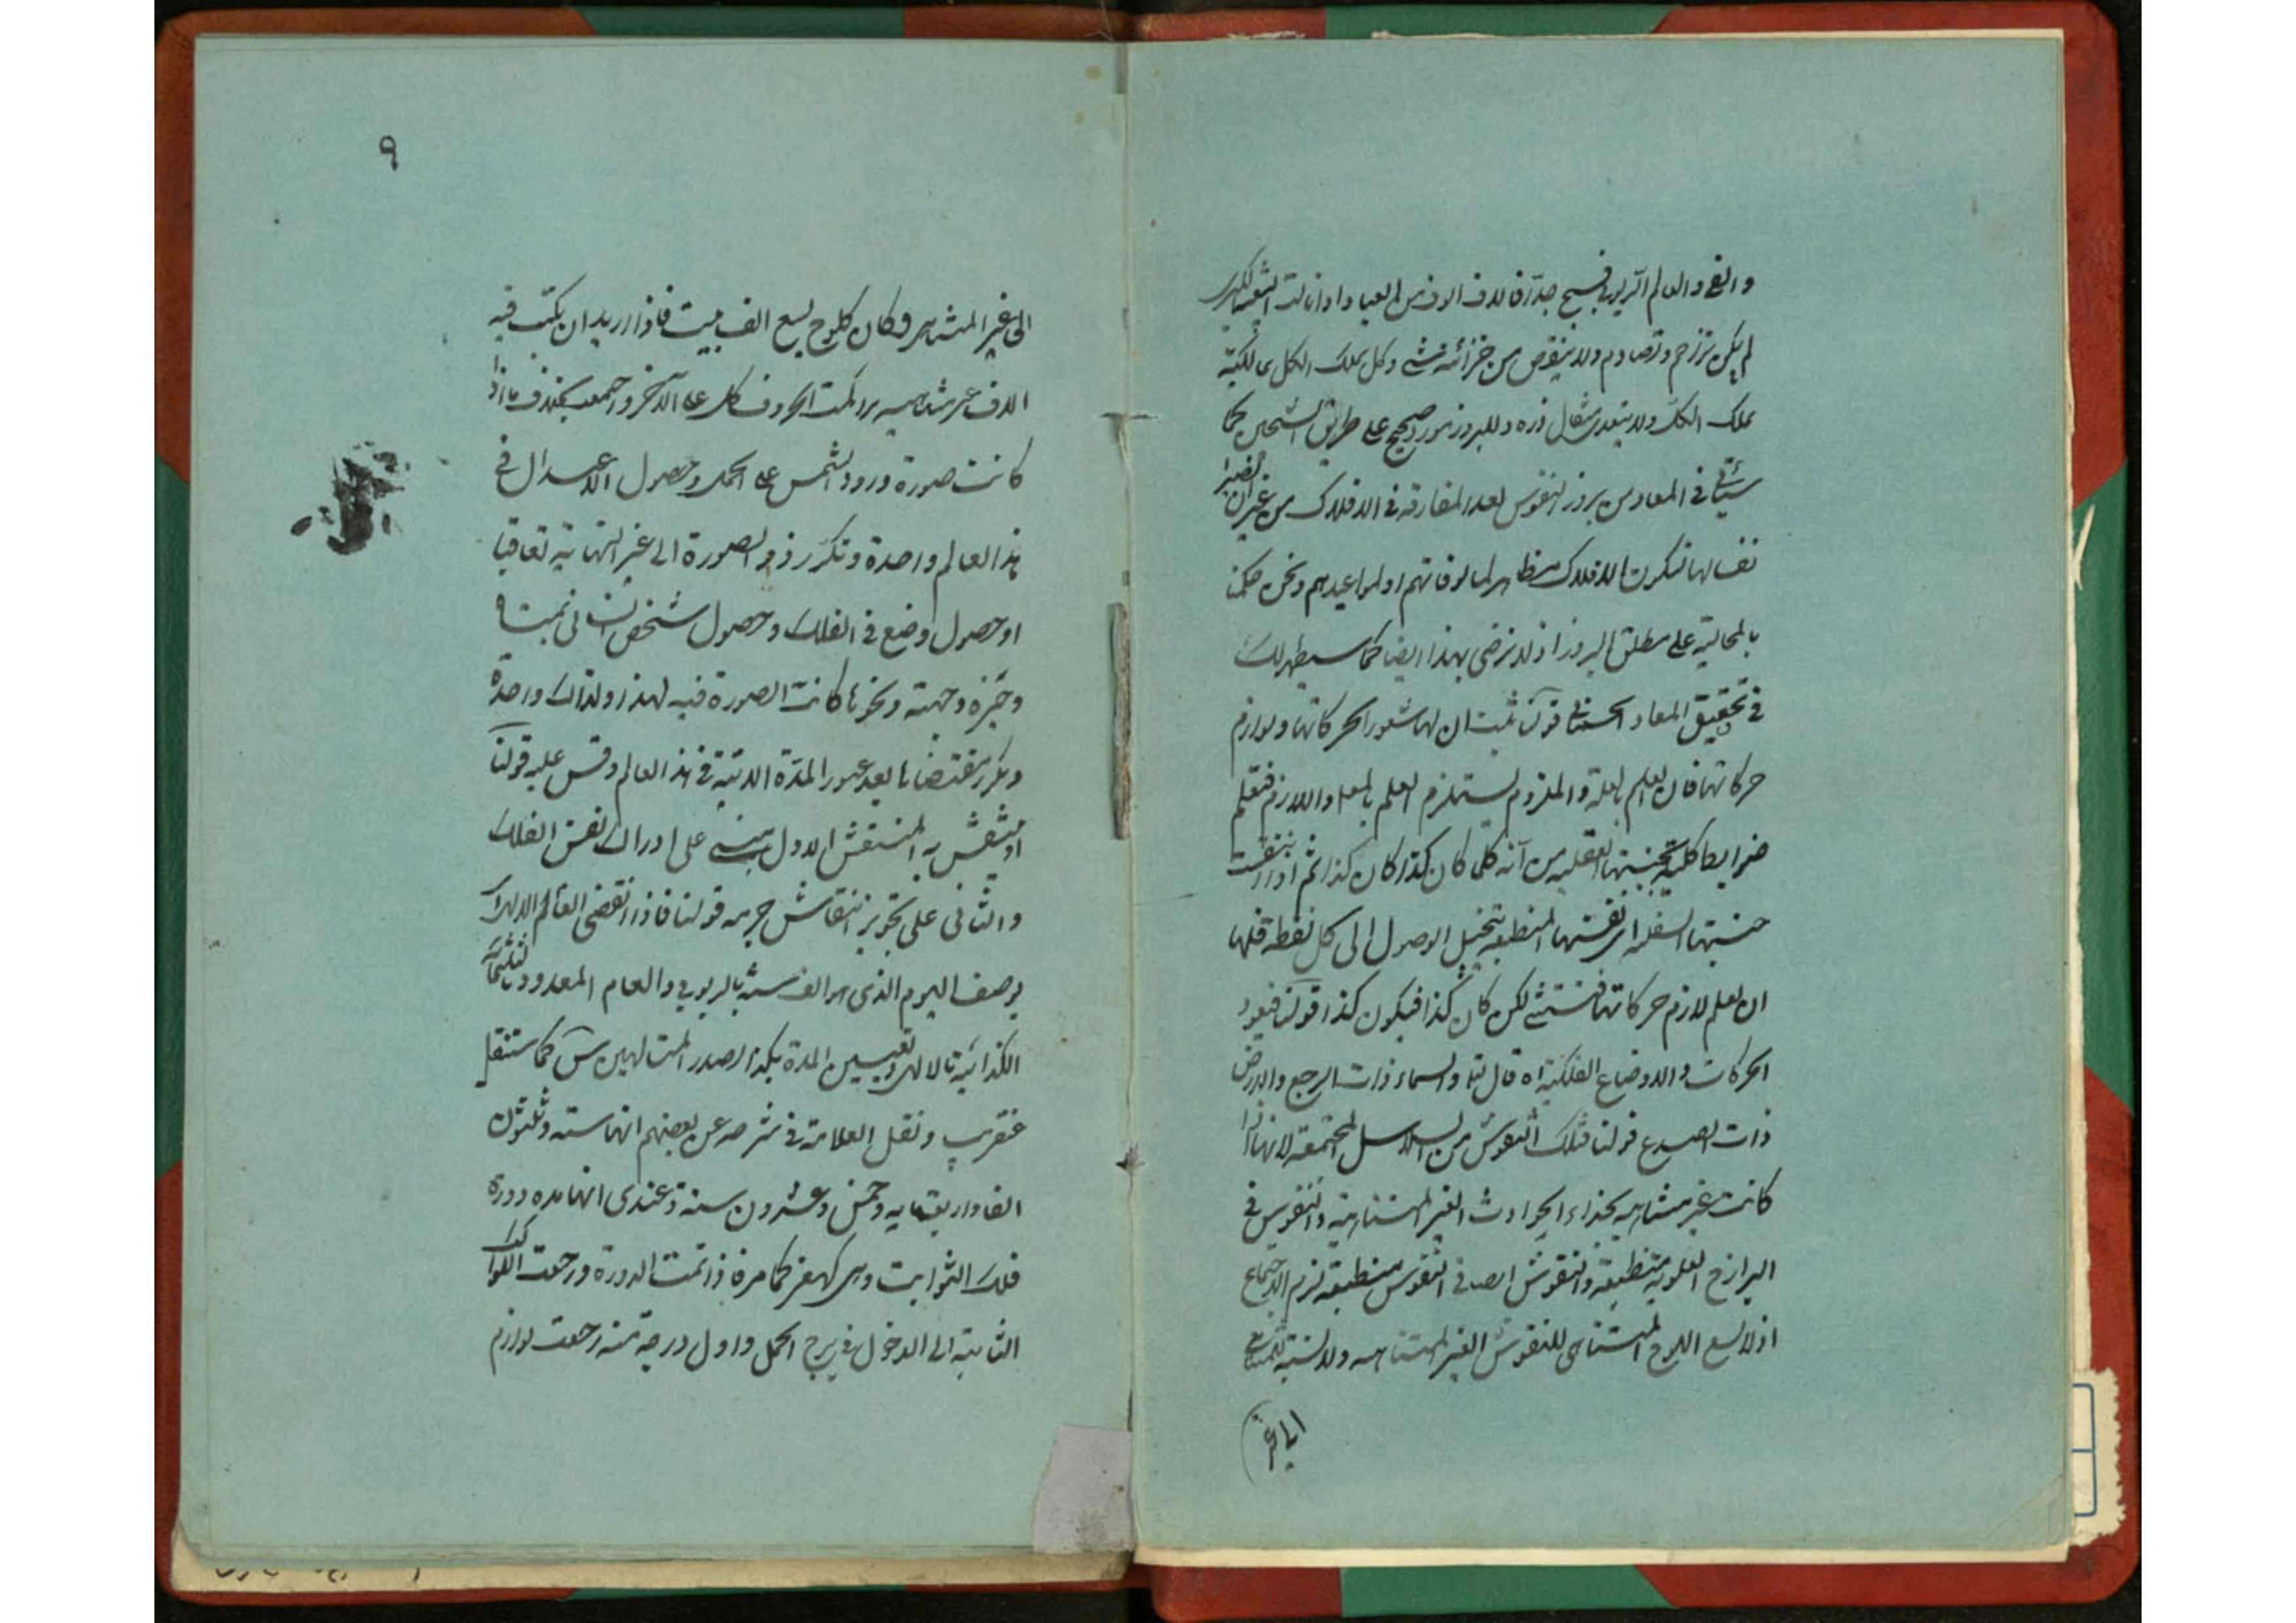 لم يكن تزاحم وتصادم ولا ينقص من خزائنه شيء وكل يملك الكل مالكية
يملك الكل ولا يتعدى مثقال ذرة وللبروز نحو صحيح على طريق
سيأتي في المعاد من بروز النفوس بعد المفارقة في الافلاك من غير ان تصيرا
نفسا لها فتكون الافلاك مظاهر لمالوفاتهم او لمواعيدهم ونحن
على مطلق البروز اذ لا نرضى بهذا ايضا كما سيظهر لك
في تحقيق المعاد الجسماني قولنا ثبت ان لها شعورا بحركاتها ولوازم
حركاتها فان العلم بالعلة والملزوم يستلزم العلم بالمعلول واللازم فتعلم
ضوابط كلية بجنبتها العقلية من انه كلما كان كذا كان كذا ثم اذا
جنبتها السفلى اى نفسها المنطبعة بتخيل الوصول الى كل نقطة فلها
ان تعلم لازم حركاتها فتستثنى لكن كان كذا فيكون كذا قولنا فيعود
الحركات والاوضاع الفلكية اه قال تع والسماء ذات الرجع والارض
ذات الصدع قولنا فتلك النقوش من السلاسل المجتمعة لانها اذا
كانت غير متناهية بحذاء الحوادث الغير المتناهية والنفوس في
البرازخ العلوية منطبعة والنقوش ايضا في النفوس منطبعة لزم الاجتماع
اذ لا يسع اللوح المتناهى للنقوش الغير المتناهيه ولا نسبة للمتناهي
الى غير
٩
الى غير المتناهى وكان كلوح يسع الف بيت فاذا اريد ان يكتب فيه
الاف غير متناهيه الحروف كل على الآخر بخلاف ما اذا
كانت صورة ورود الشمس على الحمل وحصول الاعتدال في
هذا العالم واحدة وتكرر ذو الصورة الى غير النهاية تعاقبا
او حصول وضع في الفلك وحصول شخص انساني
وحيزه وجهته ونحوها كانت الصورة فيه لهذا ولذاك واحدة
وتكرر مقتضاها بعد عبور المدة الاتية في هذا العالم وقس عليه قولنا
او منتقش به المنتقش الاول مبنى على ادراك نفس الفلك
والثاني على تجويز انتقاش جرمه قولنا فاذا انقضى العالم
بوصف اليوم الذى هو الف سنة بالربوبي والعام المعدود
الكذائية بالالهى وتعيين المدة بكذا لصدر المتالهين س كما سننقل
عنقريب ونقل العلامة في شرحه عن بعضهم انها ستة وثلثون
الفا واربعمايه وخمس وعشرون سنة وعندى انها مده دورة
فلك الثوابت وهى كما مر فاذا تمت الدورة ورجعت الكواكب
الثابتة الى الدخول في برج الحمل واول درجة منه رجعت لوازم